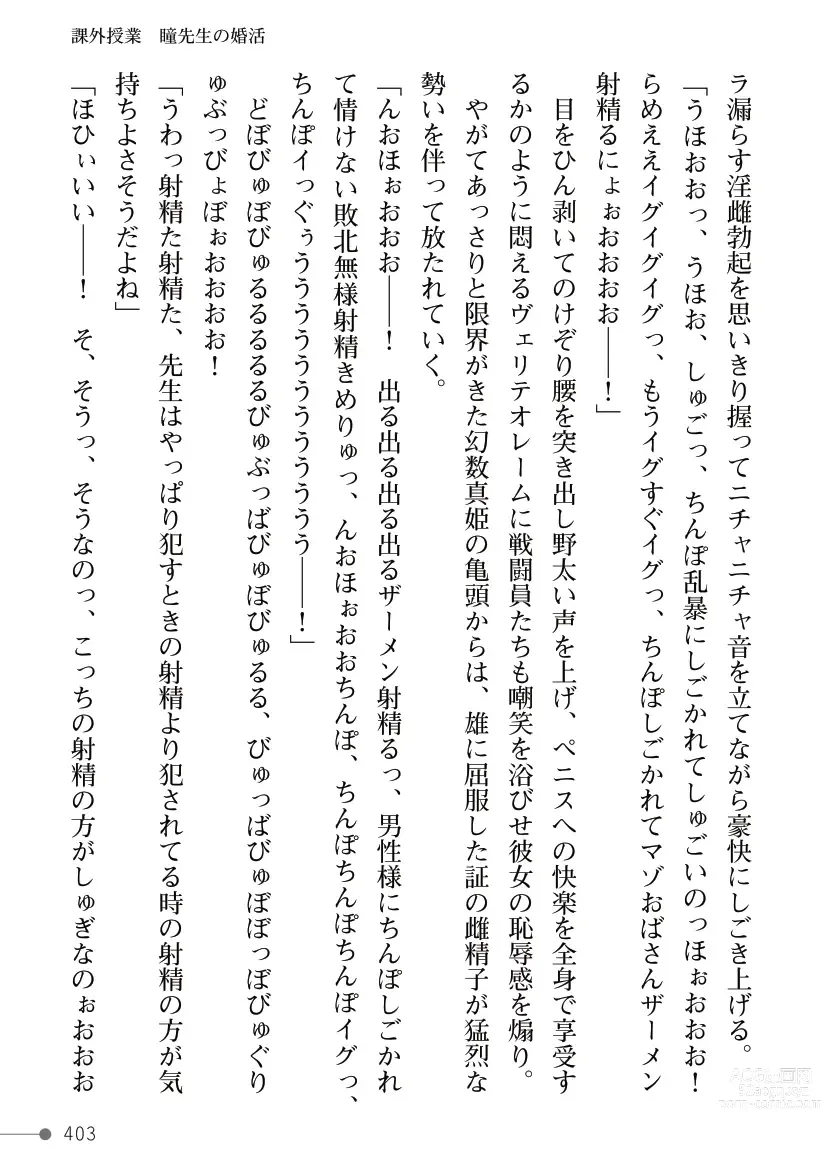 課外授業　瞳先生の婚活
ラ漏らす淫雌勃起を思いきり握ってニチャニチャ音を立てながら豪快にしごき上げる。
「うほおおっ、うほお、しゅごっ、ちんぽ乱暴にしごかれてしゅごいのっほぉおおお！
らめええイグイグイグっ、もうイグすぐイグっ、ちんぽしごかれてマゾおばさんザーメン
射精るにょぉおおおお――！」
　目をひん剥いてのけぞり腰を突き出し野太い声を上げ、ペニスへの快楽を全身で享受す
るかのように悶えるヴェリテオレームに戦闘員たちも嘲笑を浴びせ彼女の恥辱感を煽り。
　やがてあっさりと限界がきた幻数真姫の亀頭からは、雄に屈服した証の雌精子が猛烈な
勢いを伴って放たれていく。
「んおほぉおおお――！　出る出る出る出るザーメン射精るっ、男性様にちんぽしごかれ
て情けない敗北無様射精きめりゅっ、んおほぉおおちんぽ、ちんぽちんぽちんぽイグっ、
ちんぽイっぐぅうううううううううううう――！」
　どぼびゅぼびゅるるるるるびゅぶっばびゅぼびゅるる、びゅっばびゅぼぼっぼびゅぐり
ゅぶっびょぼぉおおおお！
「うわっ射精た射精た、先生はやっぱり犯すときの射精より犯されてる時の射精の方が気
持ちよさそうだよね」
「ほひぃいい――！　そ、そうっ、そうなのっ、こっちの射精の方がしゅぎなのぉおおお
403